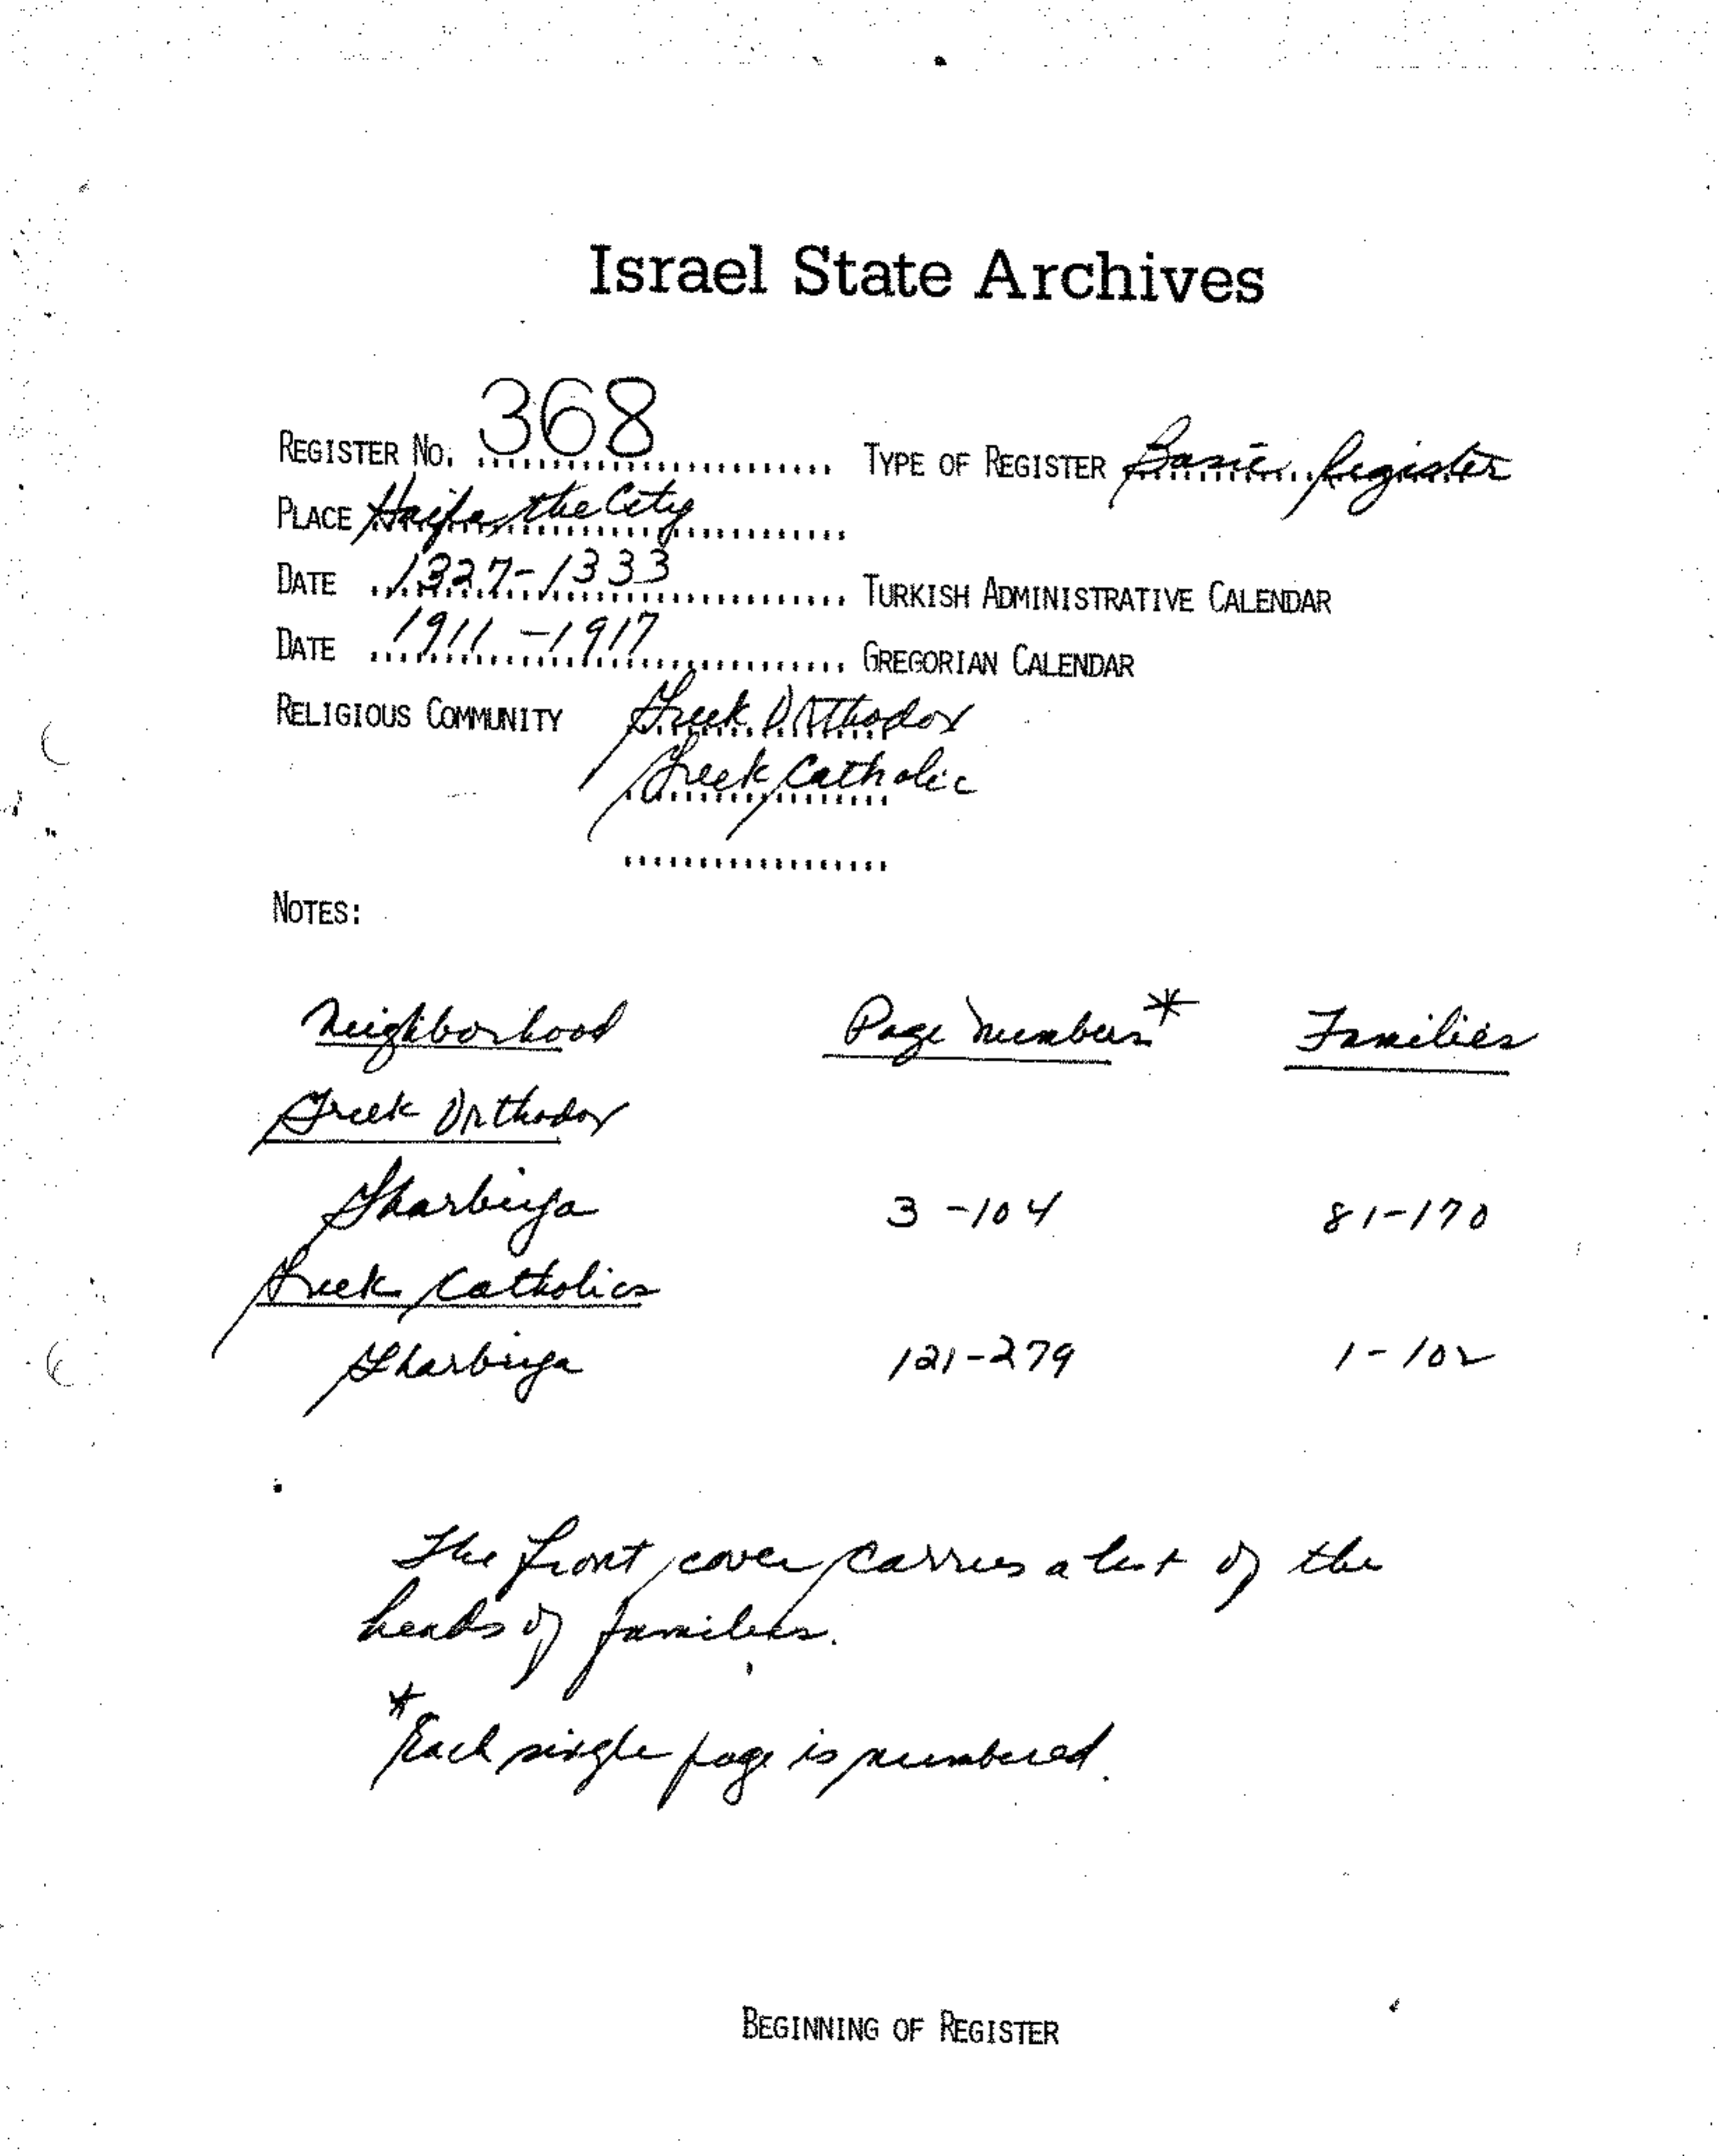 Israel State Archives
REGISTER NO. 368 TYPE OF REGISTER Basic Register
PLACE Haifa, the City
DATE 1327-1333 TURKISH ADMINISTRATIVE CALENDAR
DATE 1911-1917 GREGORIAN CALENDAR
RELIGIOUS COMMUNITY Greek Orthodox
Greek Catholic
NOTES:
Neighborhood Page Numbers* Families
Greek Orthodox
Gharbiya 3-104 81-170
Greek Catholics
Gharbiya 121-279 1-102
The front cover carries a list of the
heads of families.
*Each single page is numbered.
BEGINNING OF REGISTER